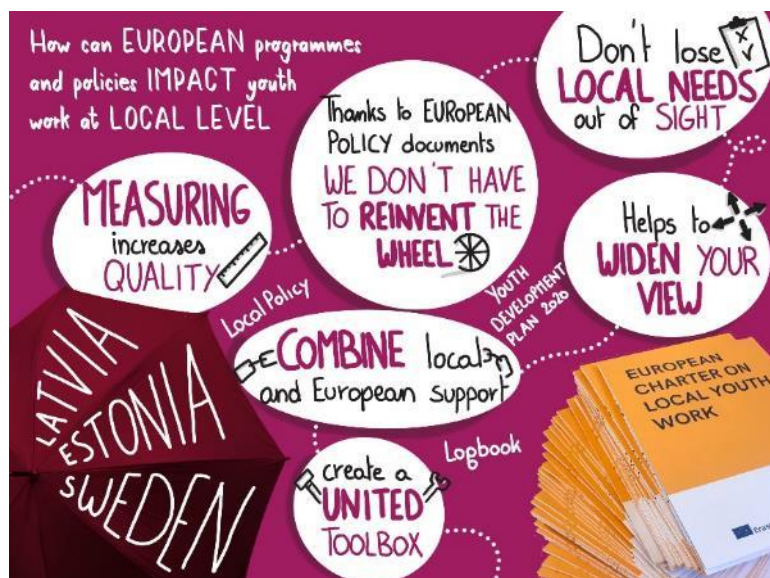 How can EUROPEAN programmes
and policies IMPACT youth
work at LOCAL LEVEL
Don't lose
LOCAL NEEDS
out of SIGHT
Thanks to EUROPEAN
POLICY documents
WE DON'T HAVE
TO REINVENT THE
WHEEL
MEASURING
increases
QUALITY
Helps to
WIDEN YOUR
VIEW
Local Policy
YOUTH
DEVELOPMENT
PLAN 2020
COMBINE local
and European support
LATVIA
ESTONIA
SWEDEN
Logbook
create a
UNITED
TOOLBOX
EUROPEAN
CHARTER ON
LOCAL YOUTH
WORK